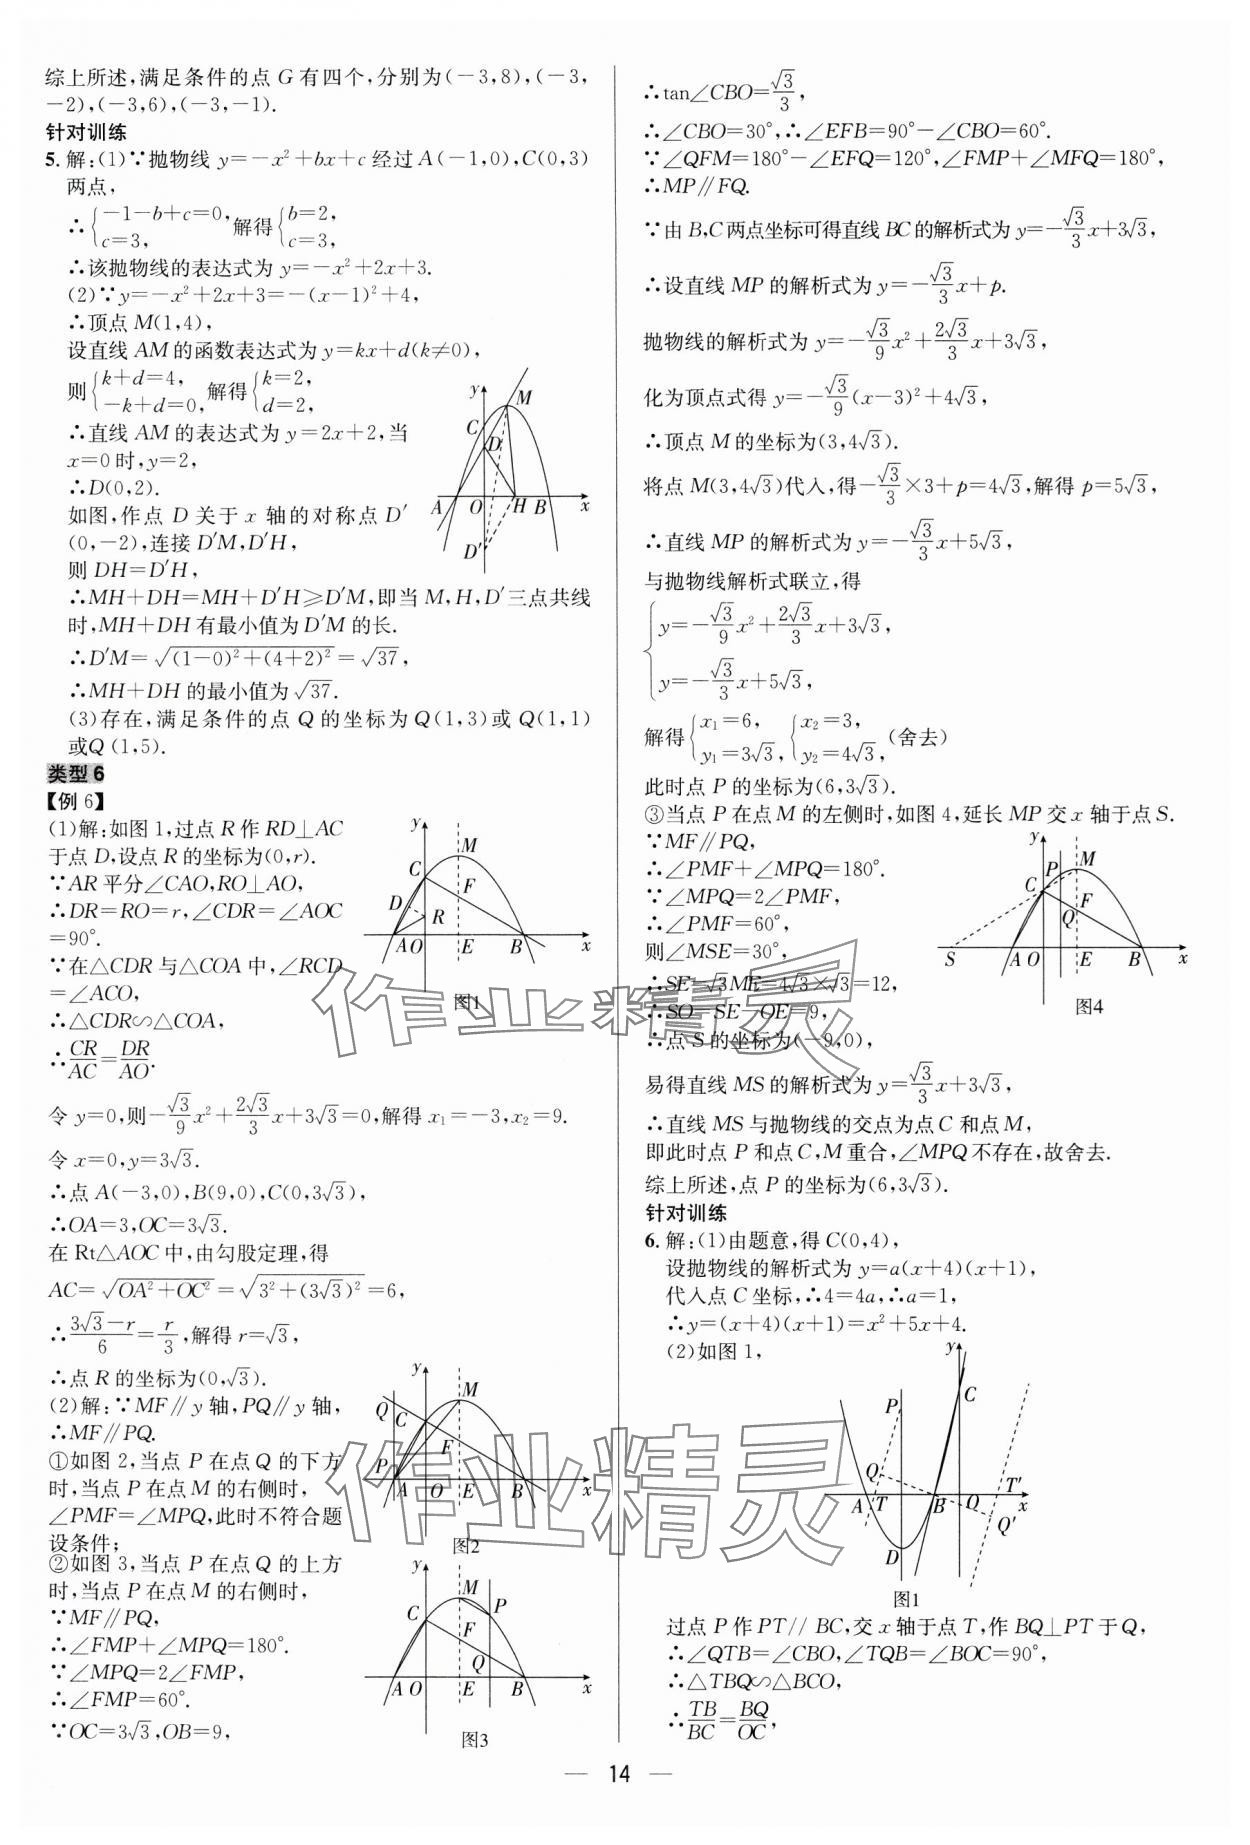 综上所述,满足条件的点 G 有四个,分别为(-3,8),(-3,
-2),(-3,6),(-3,-1).
针对训练
5. 解:(1)∵抛物线 y=-x²+bx+c 经过 A(-1,0),C(0,3)
两点,
∴{-1-b+c=0, c=3, 解得{b=2, c=3,
∴该抛物线的表达式为 y=-x²+2x+3.
(2)∵y=-x²+2x+3=-(x-1)²+4,
∴顶点 M(1,4),
设直线 AM 的函数表达式为 y=kx+d(k≠0),
则{k+d=4, -k+d=0, 解得{k=2, d=2,
∴直线 AM 的表达式为 y=2x+2,当
x=0 时,y=2,
∴D(0,2).
如图,作点 D 关于 x 轴的对称点 D′
(0,-2),连接 D′M,D′H,
则 DH=D′H,
∴MH+DH=MH+D′H≥D′M,即当 M,H,D′三点共线
时,MH+DH 有最小值为 D′M 的长.
∴D′M=√((1-0)²+(4+2)²)=√37,
∴MH+DH 的最小值为√37.
(3)存在,满足条件的点 Q 的坐标为 Q(1,3)或 Q(1,1)
或Q(1,5).
y M C D A O H B x D′
类型 6
【例 6】
(1)解:如图 1,过点 R 作 RD⊥AC
于点 D,设点 R 的坐标为(0,r).
∵AR 平分∠CAO,RO⊥AO,
∴DR=RO=r,∠CDR=∠AOC
=90°.
∵在△CDR 与△COA 中,∠RCD
=∠ACO,
∴△CDR∽△COA,
∴CR/AC=DR/AO.
y M C F D R A O E B x
图1
令 y=0,则-√3/9x²+2√3/3x+3√3=0,解得 x₁=-3,x₂=9.
令 x=0,y=3√3.
∴点 A(-3,0),B(9,0),C(0,3√3),
∴OA=3,OC=3√3.
在 Rt△AOC 中,由勾股定理,得
AC=√(OA²+OC²)=√(3²+(3√3)²)=6,
∴(3√3-r)/6=r/3,解得 r=√3,
∴点 R 的坐标为(0,√3).
(2)解:∵MF∥y 轴,PQ∥y 轴,
∴MF∥PQ.
①如图 2,当点 P 在点 Q 的下方
时,当点 P 在点 M 的右侧时,
∠PMF=∠MPQ,此时不符合题
设条件;
y M Q C F P A O E B x
图2
②如图 3,当点 P 在点 Q 的上方
时,当点 P 在点 M 的右侧时,
∵MF∥PQ,
∴∠FMP+∠MPQ=180°.
∵∠MPQ=2∠FMP,
∴∠FMP=60°.
∵OC=3√3,OB=9,
y M C P F Q A O E B x
图3
∴tan∠CBO=√3/3,
∴∠CBO=30°,∴∠EFB=90°-∠CBO=60°.
∵∠QFM=180°-∠EFQ=120°,∠FMP+∠MFQ=180°,
∴MP∥FQ.
∵由 B,C 两点坐标可得直线 BC 的解析式为 y=-√3/3x+3√3,
∴设直线 MP 的解析式为 y=-√3/3x+p.
抛物线的解析式为 y=-√3/9x²+2√3/3x+3√3,
化为顶点式得 y=-√3/9(x-3)²+4√3,
∴顶点 M 的坐标为(3,4√3).
将点 M(3,4√3)代入,得-√3/3×3+p=4√3,解得 p=5√3,
∴直线 MP 的解析式为 y=-√3/3x+5√3,
与抛物线解析式联立,得
{y=-√3/9x²+2√3/3x+3√3,
y=-√3/3x+5√3,
解得{x₁=6, y₁=3√3, {x₂=3, y₂=4√3, (舍去)
此时点 P 的坐标为(6,3√3).
③当点 P 在点 M 的左侧时,如图 4,延长 MP 交 x 轴于点 S.
∵MF∥PQ,
∴∠PMF+∠MPQ=180°.
∵∠MPQ=2∠PMF,
∴∠PMF=60°,
则∠MSE=30°,
∴SE=√3ME=4√3×√3=12,
∴SO=SE-OE=9,
∴点 S 的坐标为(-9,0),
y P M C F Q S A O E B x
图4
易得直线 MS 的解析式为 y=√3/3x+3√3,
∴直线 MS 与抛物线的交点为点 C 和点 M,
即此时点 P 和点 C,M 重合,∠MPQ 不存在,故舍去.
综上所述,点 P 的坐标为(6,3√3).
针对训练
6. 解:(1)由题意,得 C(0,4),
设抛物线的解析式为 y=a(x+4)(x+1),
代入点 C 坐标,∴4=4a,∴a=1,
∴y=(x+4)(x+1)=x²+5x+4.
(2)如图 1,
y C P Q T′ A T B Q x Q′ D
图1
过点 P 作 PT∥BC,交 x 轴于点 T,作 BQ⊥PT 于 Q,
∴∠QTB=∠CBO,∠TQB=∠BOC=90°,
∴△TBQ∽△BCO,
∴TB/BC=BQ/OC,
— 14 —
作业精灵
作业精灵